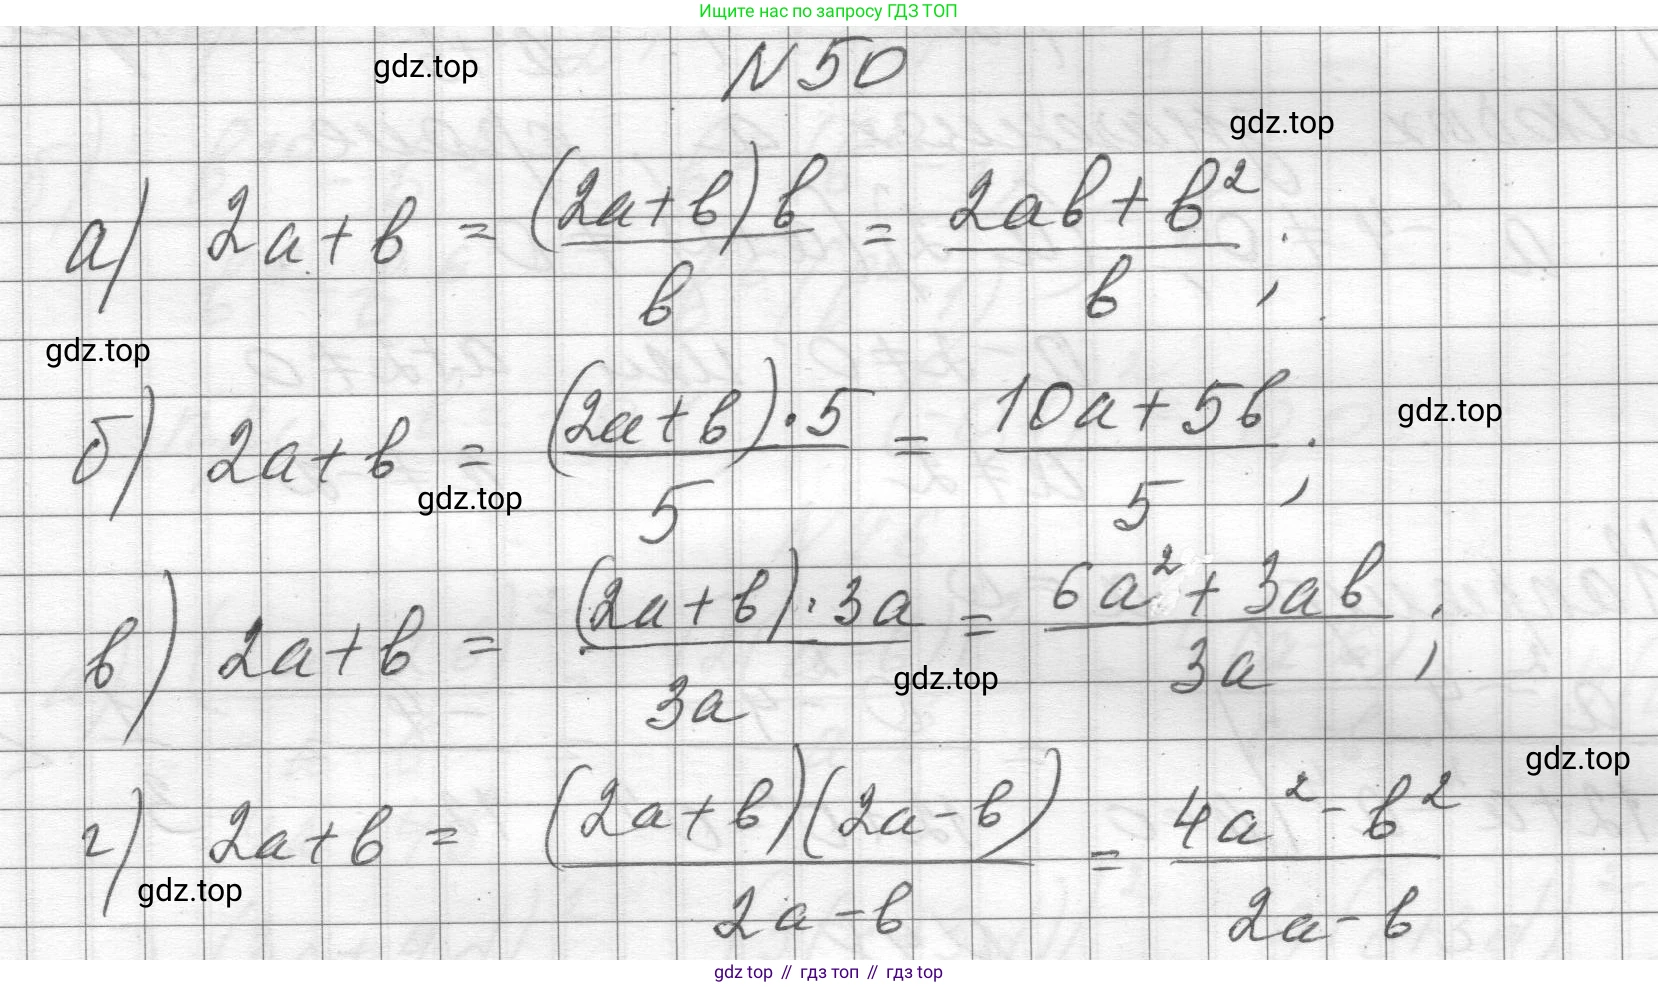 Ищите нас по запросу ГДЗ ТОП
gdz.top
N 50
gdz.top
а) 2a+b = (2a+b)b / b = 2ab+b² / b ;
gdz.top
б) 2a+b = (2a+b)·5 / 5 = 10a+5b / 5 ;
gdz.top
gdz.top
в) 2a+b = (2a+b)·3a / 3a = 6a²+3ab / 3a ;
gdz.top
gdz.top
г) 2a+b = (2a+b)(2a-b) / 2a-b = 4a²-b² / 2a-b
gdz.top
gdz top // гдз топ // gdz top